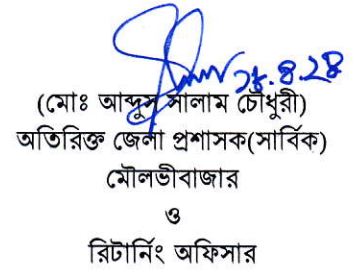 (মোঃ আব্দুস সালাম চৌধুরী)
অতিরিক্ত জেলা প্রশাসক(সার্বিক)
মৌলভীবাজার
ও
রিটার্নিং অফিসার